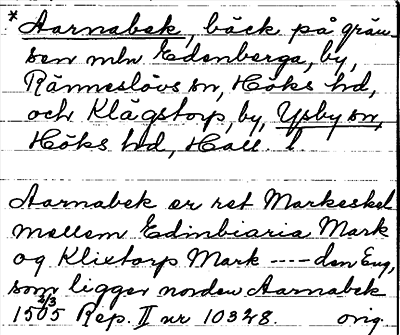 * Aarnabek, bäck på grän-
sen mln Edenberga, by,
Ränneslövs sn, Höks hd,
och Klägstorp, by, Ysby sn,
Höks hd, Hall. l
Aarnabek er ret Markeskel
mellem Edinbiaria Mark
og Klixtorp Mark ---- den Eng,
som ligger norden Aarnabek
15 2/3 05 Rep. II nr 10328. orig.